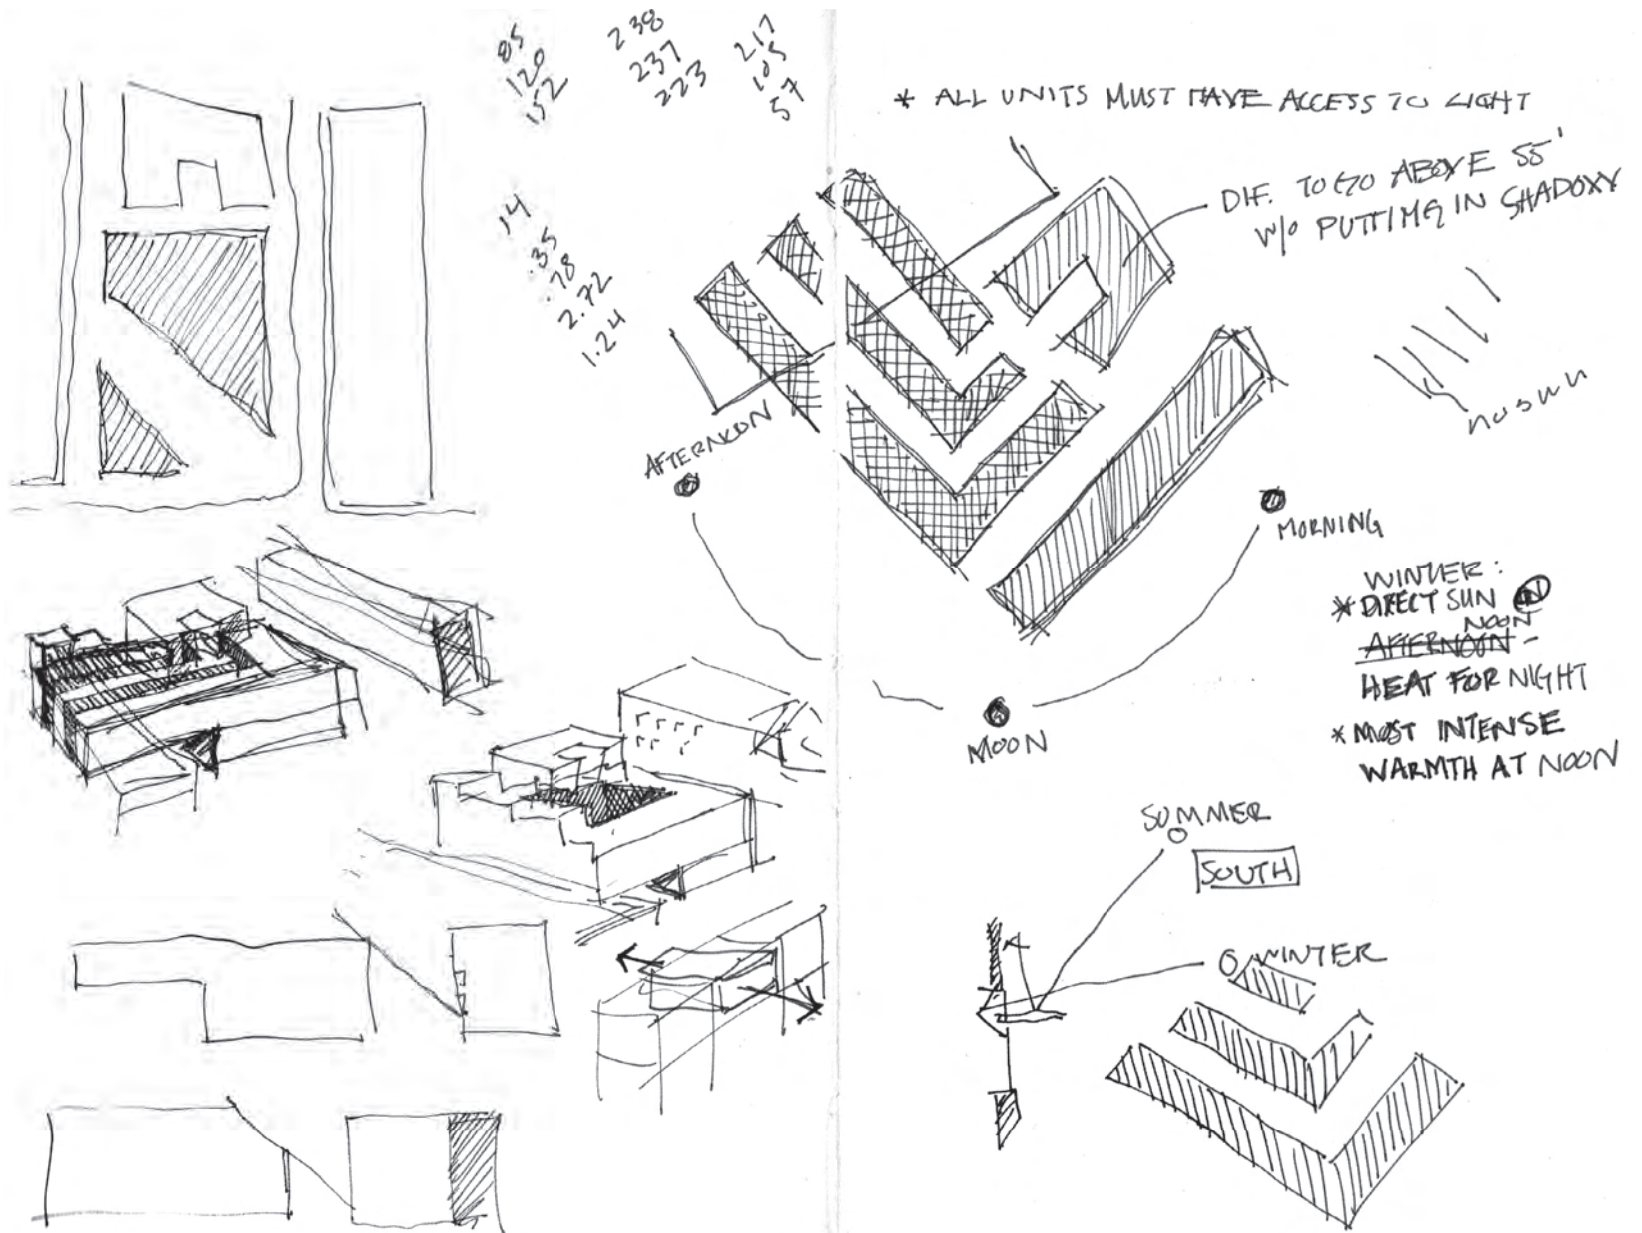 85
120
152
238
237
223
217
105
57
14
.35
.78
2.72
1.24
* ALL UNITS MUST HAVE ACCESS TO LIGHT
DIF. TO GO ABOVE 55'
W/O PUTTING IN SHADOW
AFTERNOON
MORNING
MOON
WINTER:
* DIRECT SUN IN
NOON
AFTERNOON -
HEAT FOR NIGHT
* MOST INTENSE
WARMTH AT NOON
SUMMER
SOUTH
WINTER